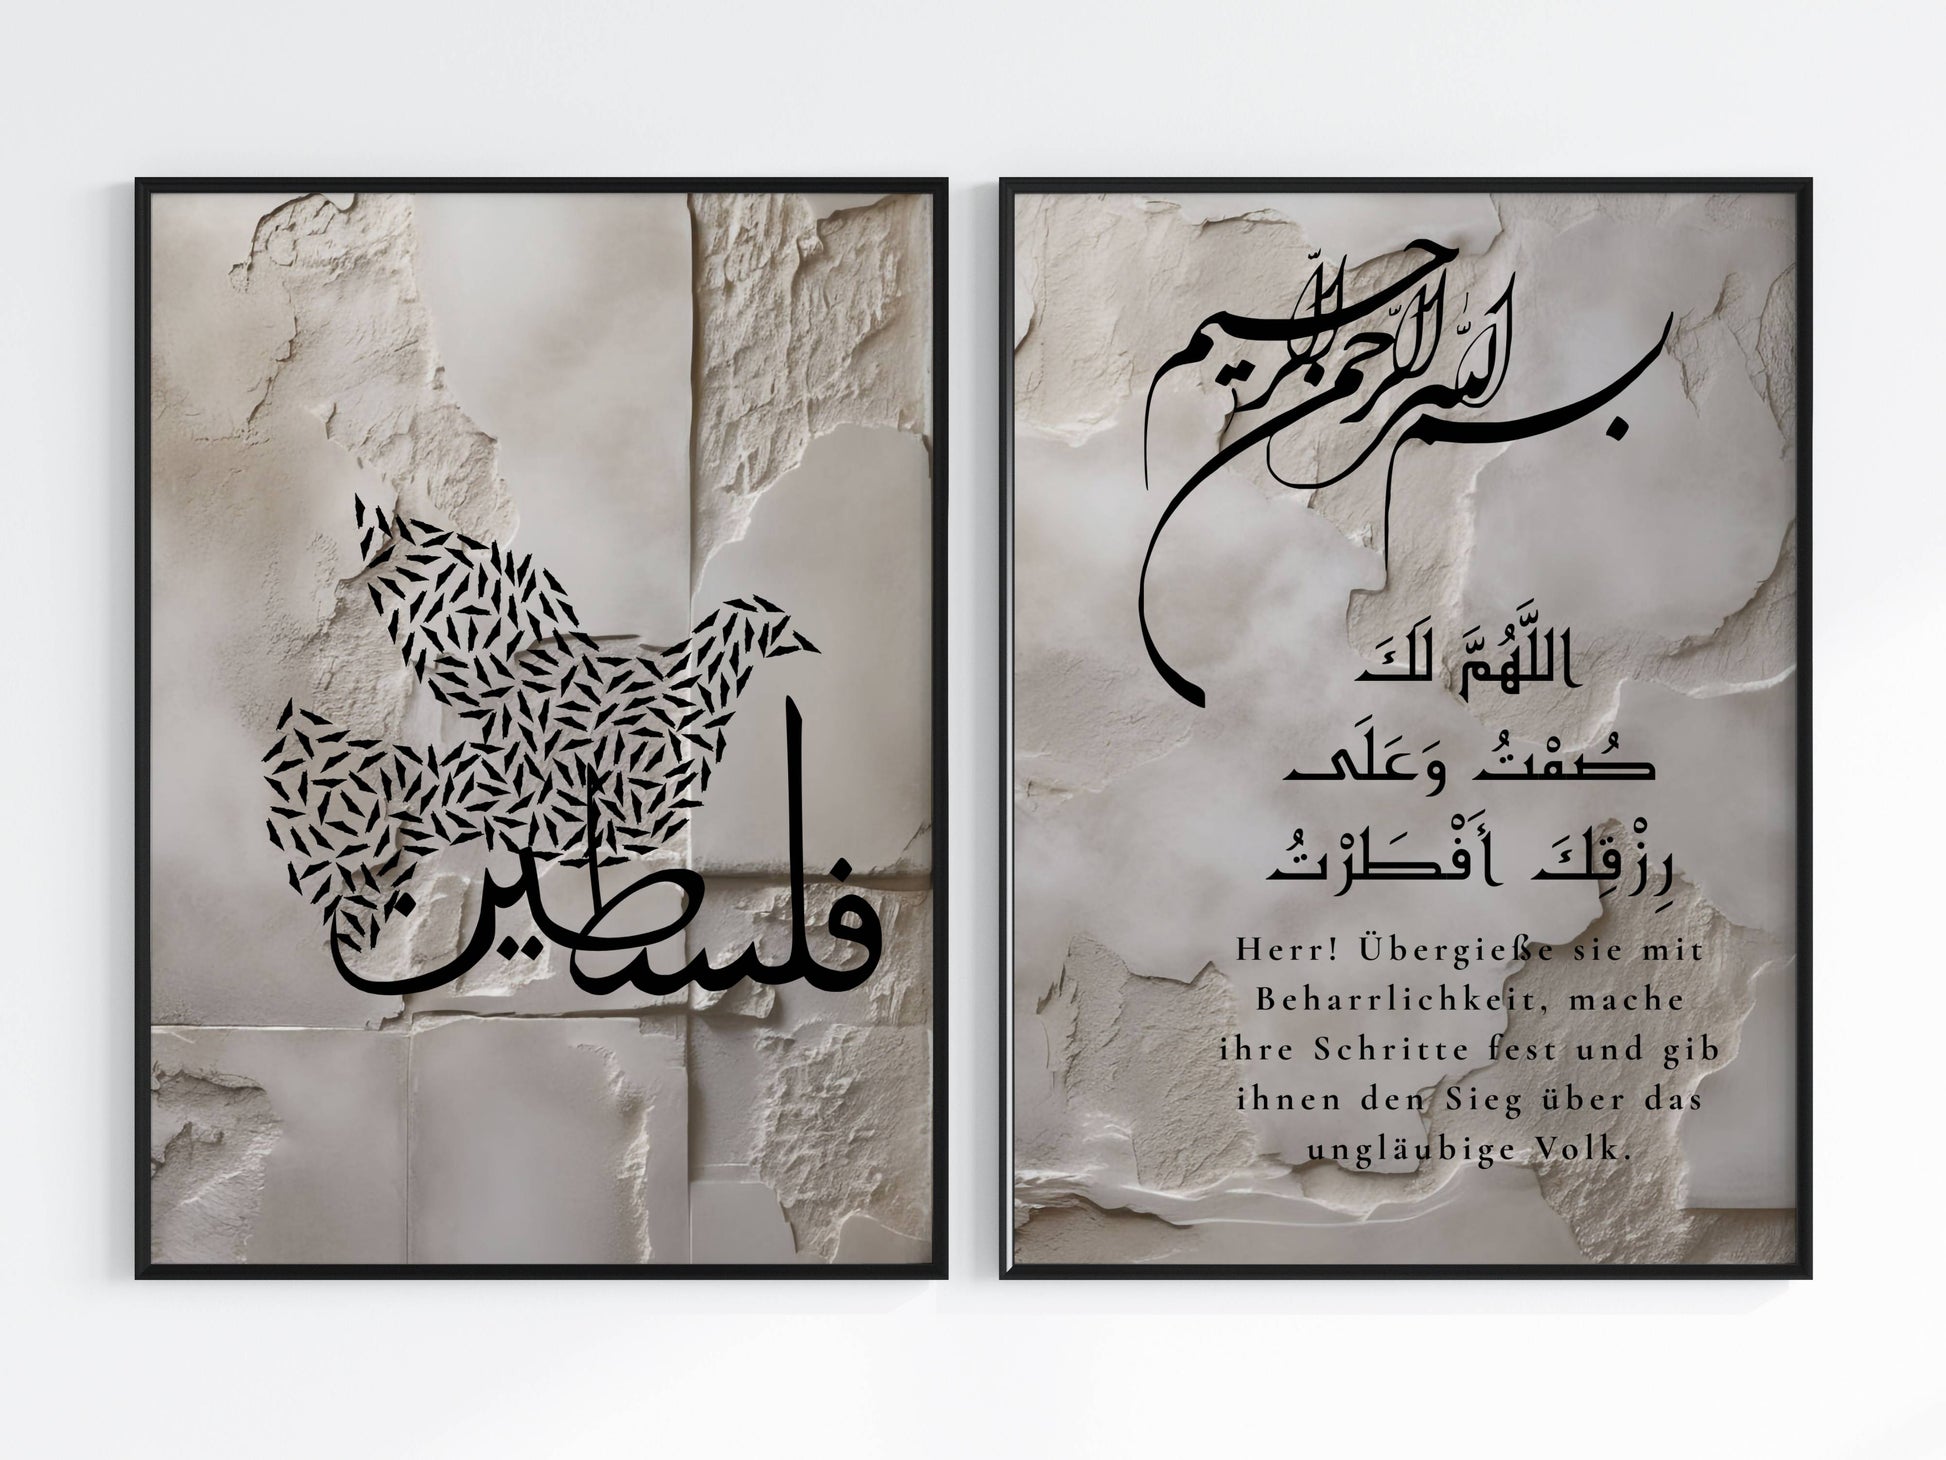 فلسطين
بسم الله الرحمن الرحيم
اللَّهُمَّ لَكَ
صُمْتُ وَعَلَى
رِزْقِكَ أَفْطَرْتُ
Herr! Übergieße sie mit
Beharrlichkeit, mache
ihre Schritte fest und gib
ihnen den Sieg über das
ungläubige Volk.